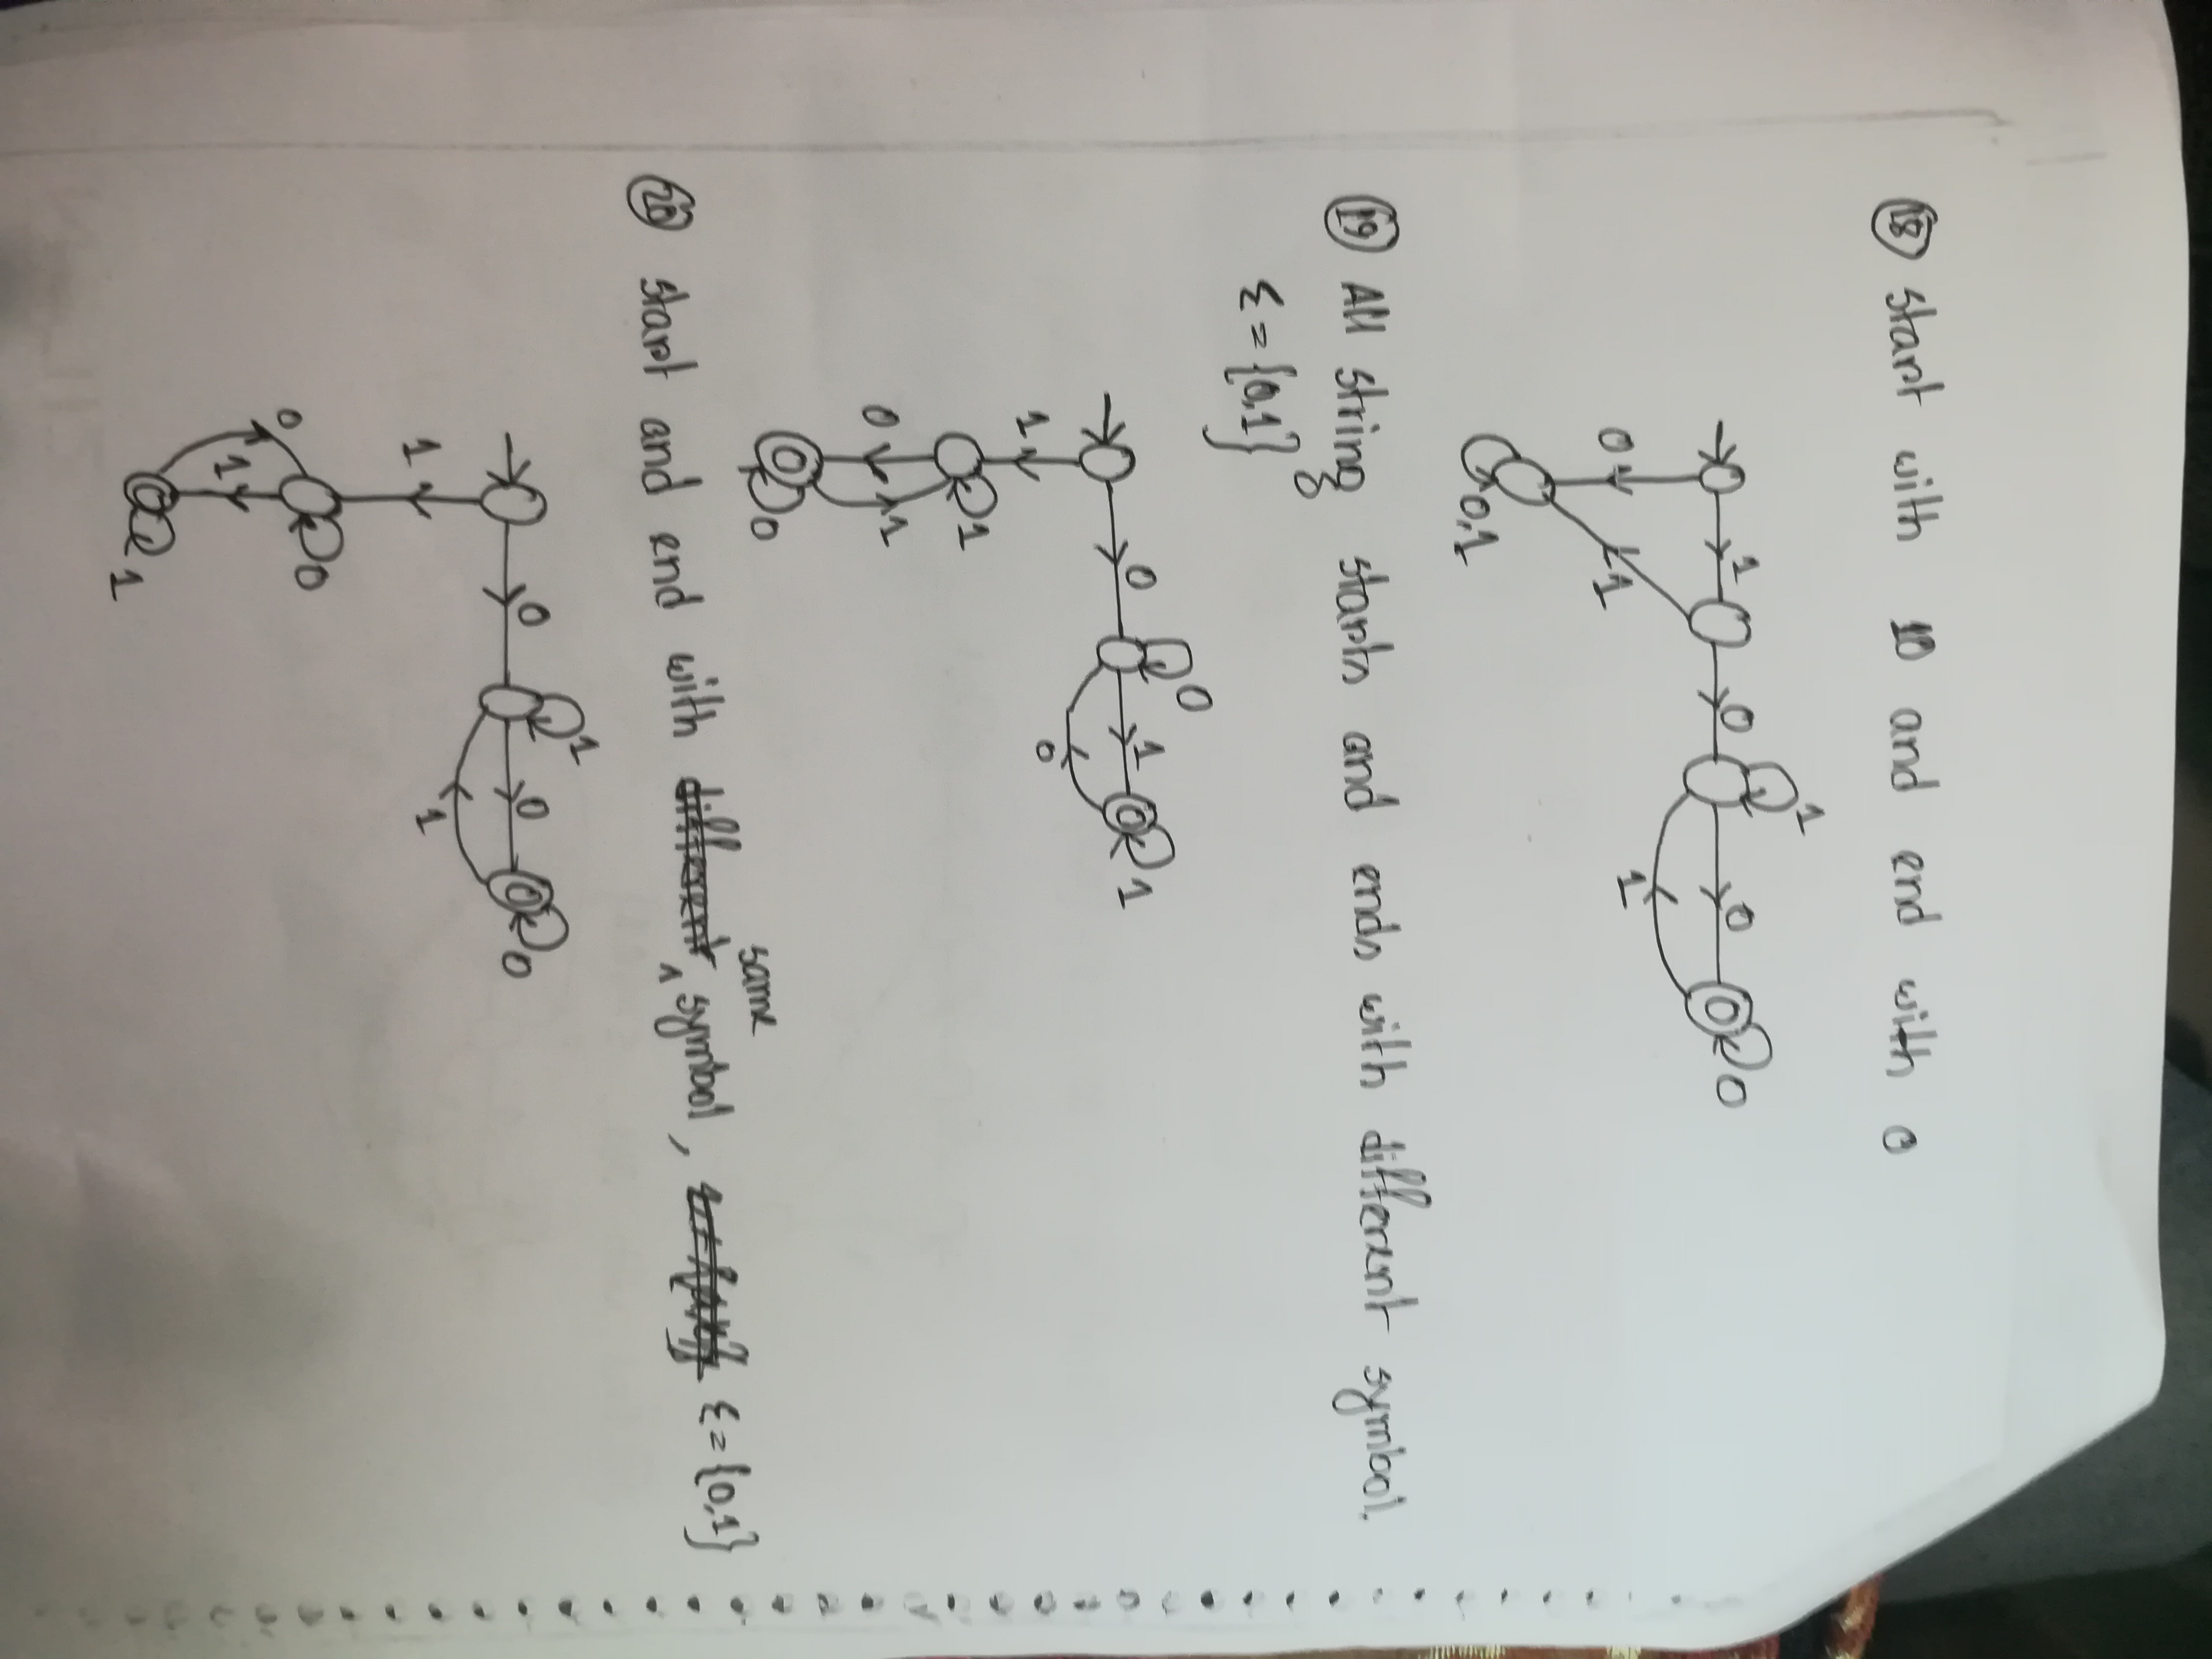 18 start with 10 and end with 0
1
1 0 0 0
0 1 1
0,1
19 All string starts and ends with different symbol.
Σ = {0,1}
0
0 1 1
0
1
1
0 1
0
same
20 start and end with different ^ symbol, Σ = {0,1}
1
0 0 0
1
1
0
0
1
1